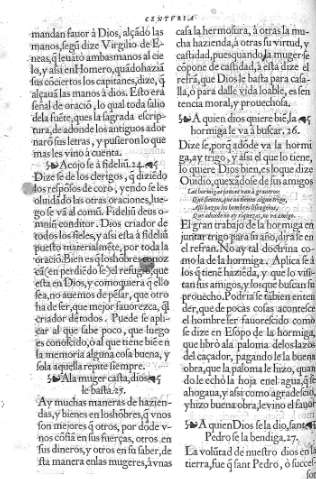 CENTVRIA
mandan fauor à Dios, alçãdo las
manos, segũ dize Virgilio de E-
neas, q̃ leuãtò ambas manos al cie
lo, y assi en Homero, quãdo haziã
sus cõciertos los capitanes, dize, q̃
alçauã las manos à dios. Esto era
señal de oraciõ, lo qual toda salio
dela fuẽte, ques la sagrada escrip-
tura, de adonde los antiguos ador
narõ sus letras, y pusieron lo que
mas les vino à cuenta.
Acojose à fideliũ. 24.
Dize se de los clerigos, q̃ diziẽdo
los resposos de coro, y endo se les
oluidãdo las otras oraciones, luego
se vã al comũ. Fideliũ deus om-
niũ conditor. Dios criador de
todos los fieles, y assi esta à fideliũ
puesto materialmẽte, por toda la
oraciõ. Bien es q̃ los hõbres conoz
cã (en perdiẽdo se) el refugio, que
esta en Dios, y como quiera q̃ ello
sea, no auemos de pẽsar, que otro
ha de ser, que mejor fauorezca, q̃ el
criador de todos. Puede se apli-
car al que sabe poco, que luego
es conoscido, ò al que tiene biẽ en
la memoria alguna cosa buena, y
sola aquella repite siempre.
A la muger casta, dios
le basta. 25.
Ay muchas maneras de hazien-
das, y bienes en los hõbres, q̃ vnos
son mejores q̃ otros, por dõde v-
nos cõfiã en sus fuerças, otros en
sus dineros, y otros en su saber, de
sta manera en las mugeres, à vnas
casa la hermosura, à otras la mu-
cha hazienda, à otras su virtud, y
castidad, pues quando la muger se
cõpone de castidad, à esta dize el
refrã, que Dios le basta para casa-
lla, ò para dalle vida loable, es sen
tencia moral, y prouechosa.
A quien dios quiere biẽ, la
hormiga le va à buscar. 26.
Dize se, porq̃ adõde va la hormi
ga, ay trigo, y assi el que lo tiene,
lo quiere Dios bien, es lo que dize
Ouidio, quexãdose de sus amigos
El gran trabajo de la hormiga en
juntar trigo para su año, dirà se en
el refran. No ay tal doctrina co-
mo la de la hormiga. Aplica se à
los q̃ tienẽ haziẽda, y que lo visi-
tan sus amigos, y los que buscan su
prouecho. Podria se tãbien enten
der, que de pocas cosas acontesce
el hombre ser fauorescido como
se dize en Esopo de la hormiga,
que librò à la paloma de los lazos
del caçador, pagando le la buena
obra, que la paloma le hizo, quan
do le echò la hoja en el agua, q̃ se
ahogaua, y assi como agradesciò,
y hizo buena obra, le vino el fauor
A quien Dios se la dio, sant
Pedro se la bendiga. 27.
La volũtad de nuestro dios en la
tierra, fue q̃ sant Pedro, ò succes-